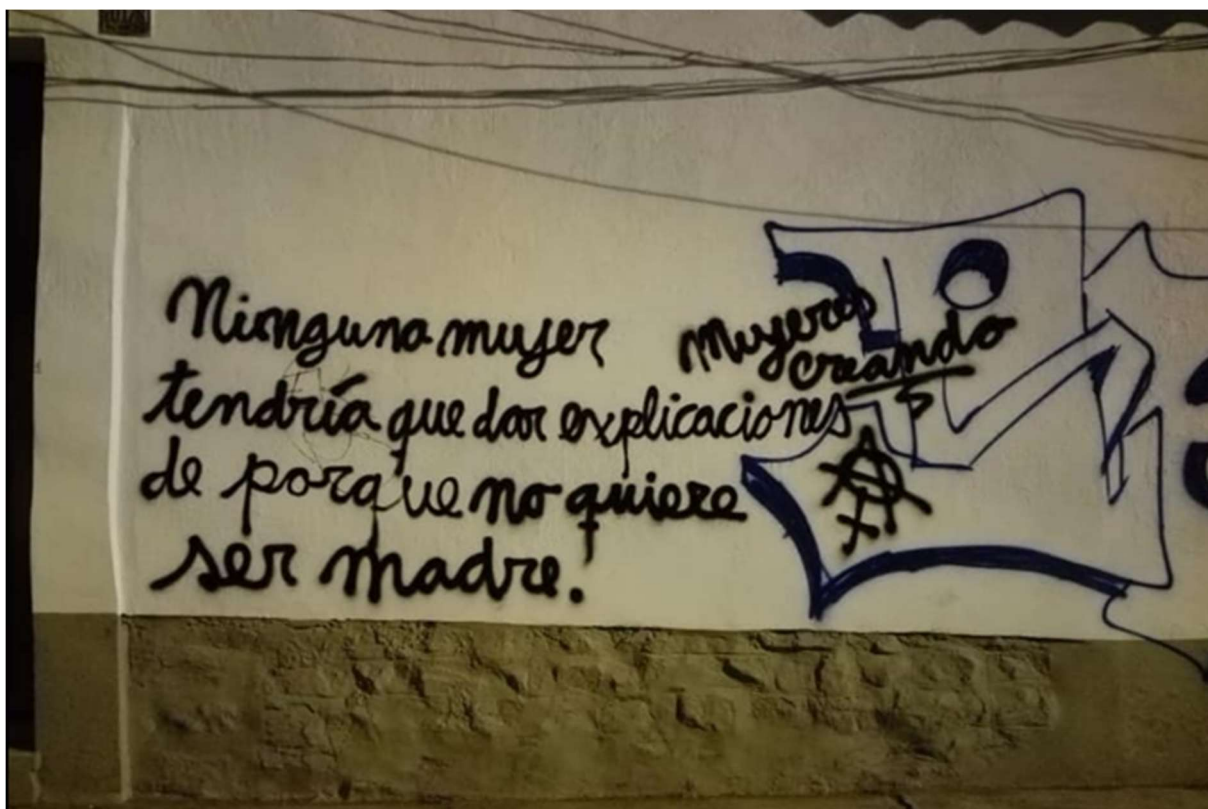 Ninguna mujer
tendría que dar explicaciones
de porque no quiere
ser madre.
mujeres
creando